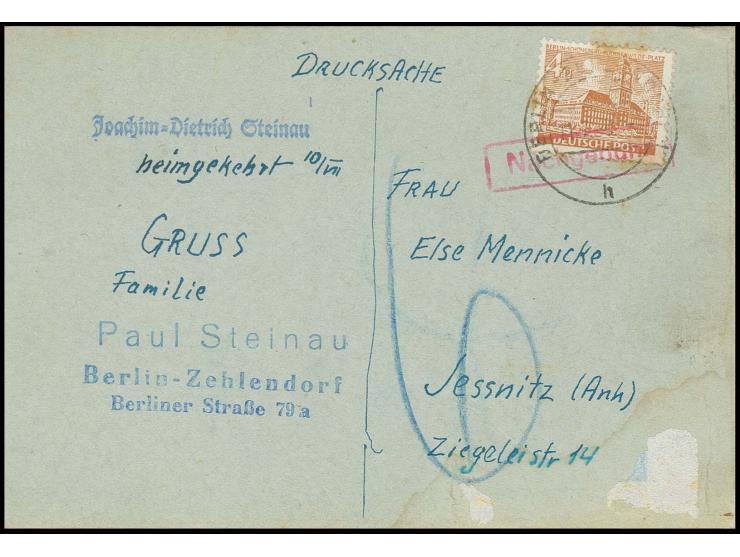 DRUCKSACHE
Joachim-Dietrich Steinau
heimgekehrt 10/VII
GRUSS
Familie
Paul Steinau
Berlin-Zehlendorf
Berliner Straße 79a
4
DEUTSCHE POST
BERLIN
h
FRAU
Else Mennicke
Jessnitz (Anh)
Ziegeleistr 14
6